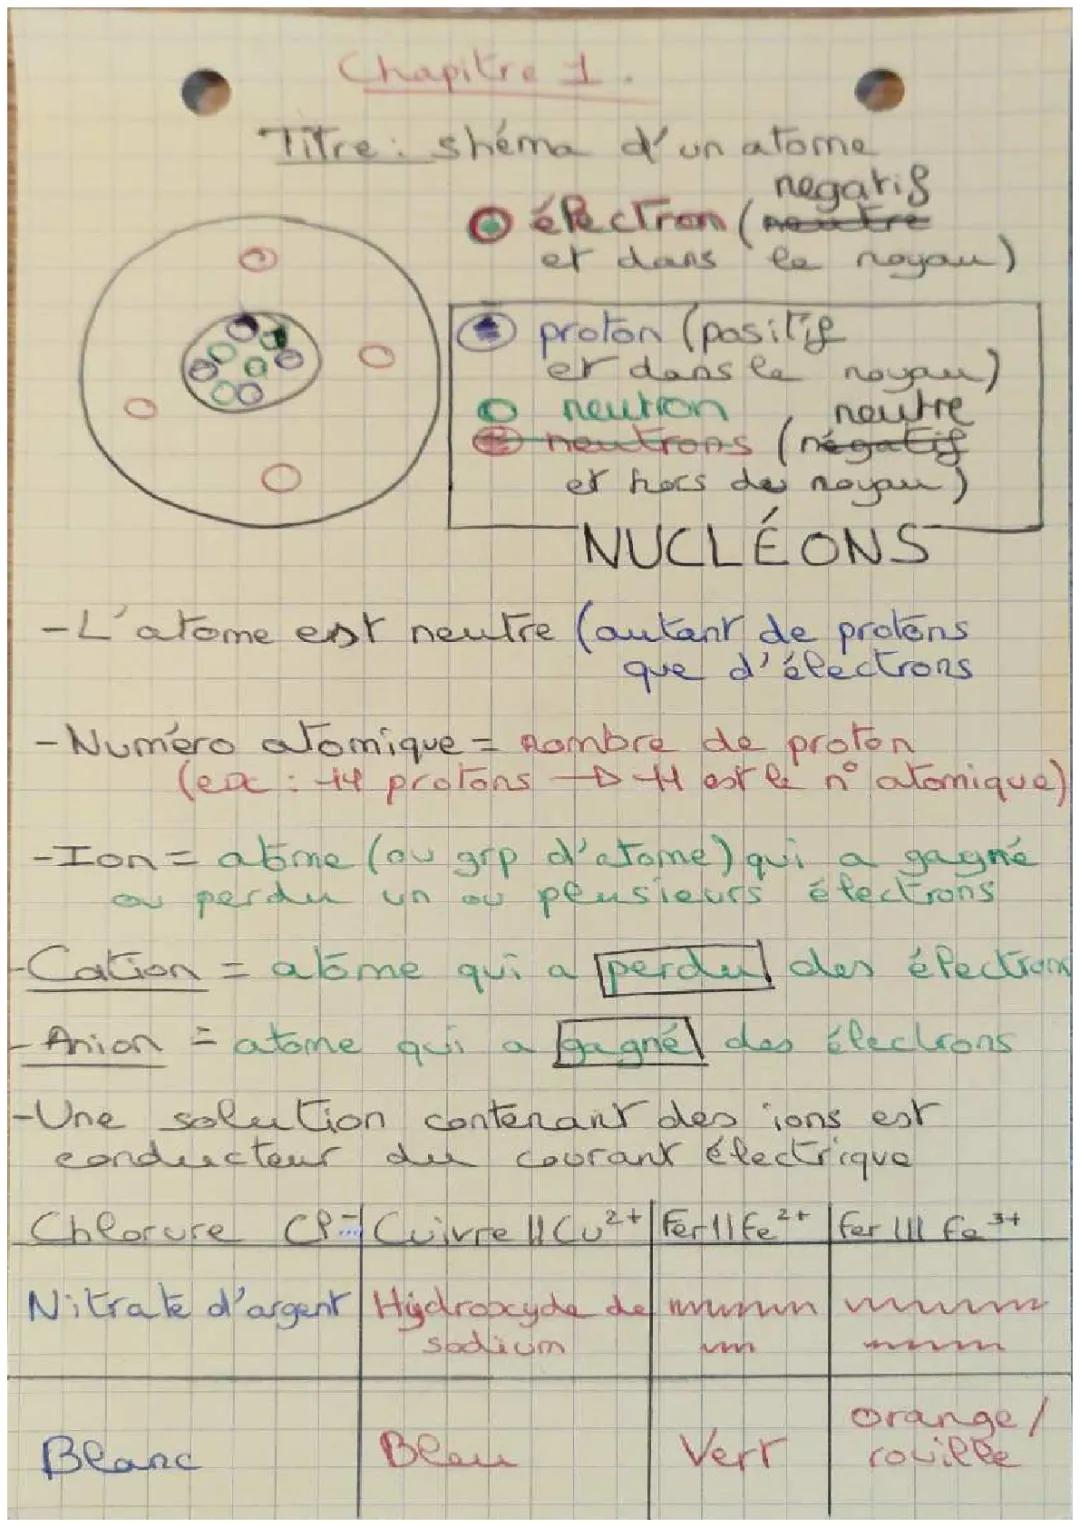 Chapitre 1.
Titre : shéma d'un atome
électron (neutre negatif
et dans le noyau)
proton (positif
et dans le noyau)
neutron neutre
neutrons (négatif
et hors de noyau)
NUCLÉONS
-L'atome est neutre (autant de protons
que d'électrons
-Numéro atomique = nombre de proton
(ex : 14 protons → 14 est le n° atomique)
-Ion = atome (ou grp d'atome) qui a gagné
ou perdu un ou plusieurs électrons
-Cation = atome qui a perdu des électrons
-Anion = atome qui a gagné des électrons
-Une solution contenant des ions est
conducteur du courant électrique
Chlorure Cl⁻ Cuivre II Cu²⁺ Fer II Fe²⁺ Fer III Fe³⁺
Nitrate d'argent Hydroxyde de
sodium
Blanc Bleu Vert orange/
rouille